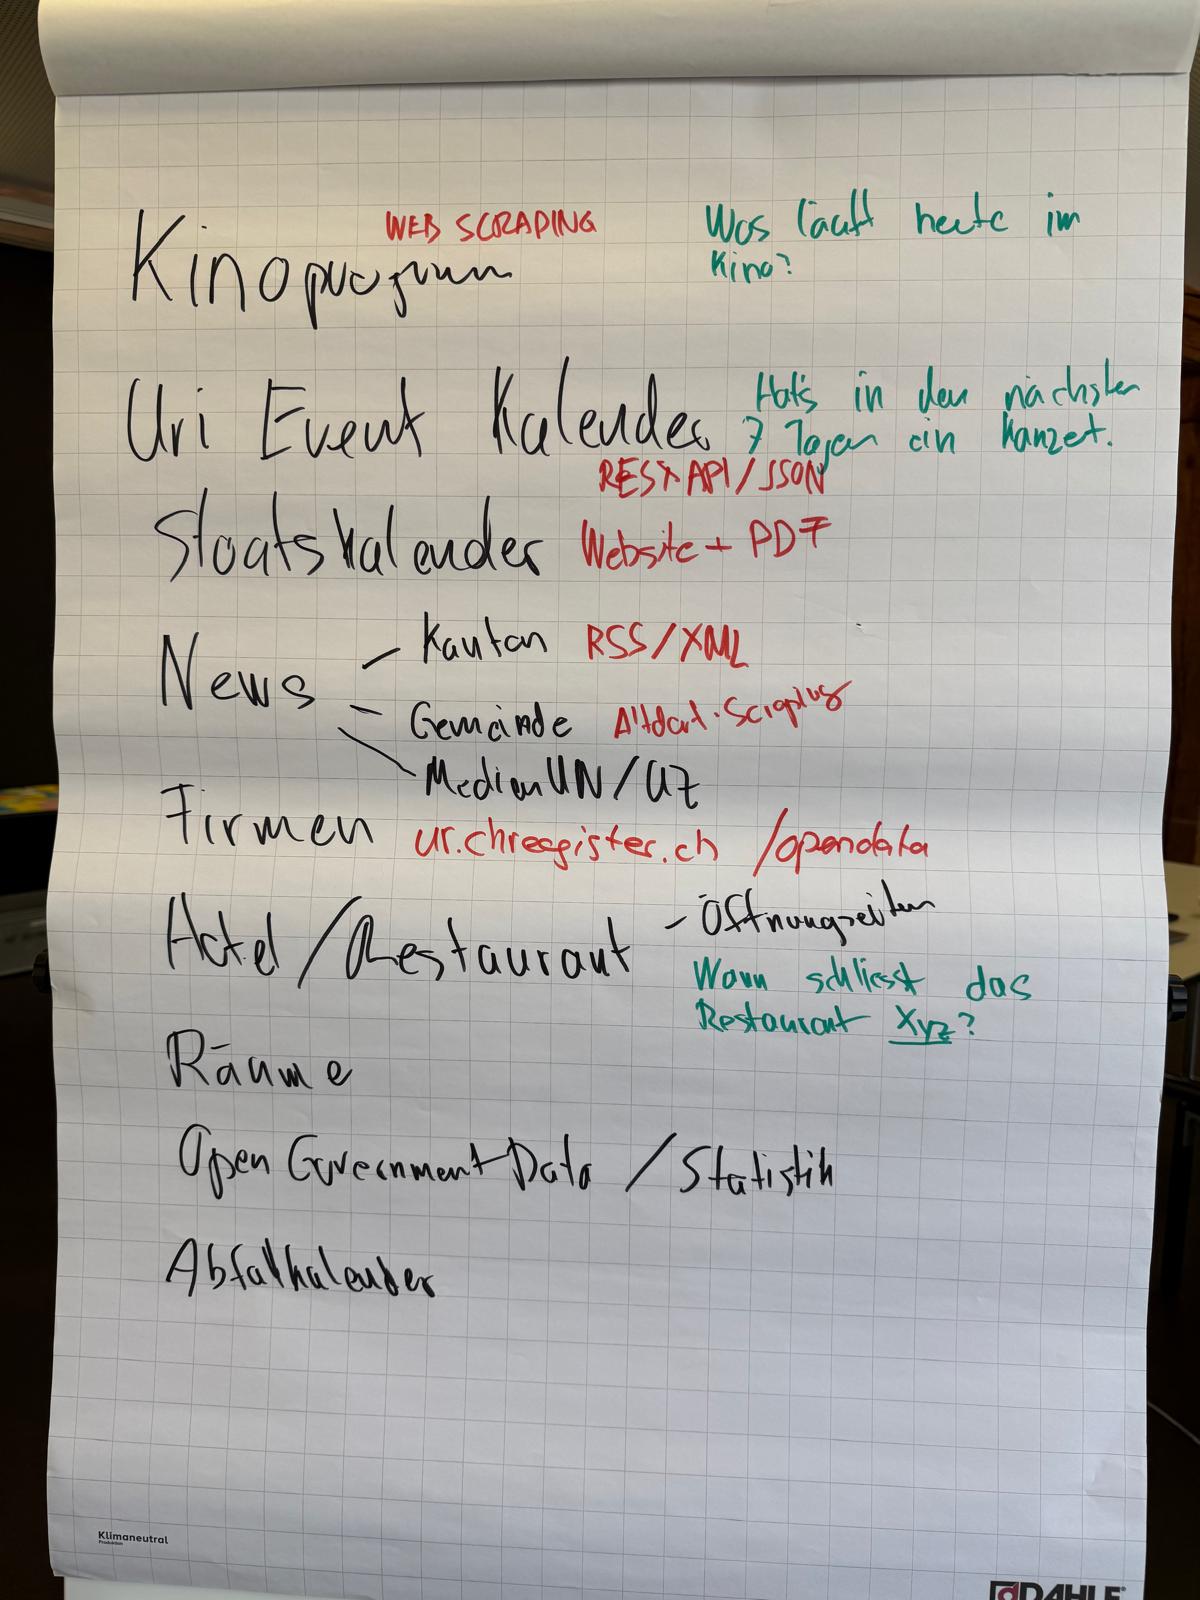 WEB SCRAPING
Kinoprogramm
Was läuft heute im
Kino?
Uri Event Kalender
Hat's in den nächsten
7 Tagen ein Konzert.
REST API/JSON
Staatskalender Website + PDF
News
- Kanton RSS/XML
- Gemeinde Altdorf.
Medien UW/UZ
Firmen ur.chregister.ch /opendata
Hotel/Restaurant - Öffnungszeiten
Wann schliesst das
Restaurant Xyz?
Räume
Open Government Data / Statistik
Abfallkalender
Klimaneutral
Produktion
DAHLE®